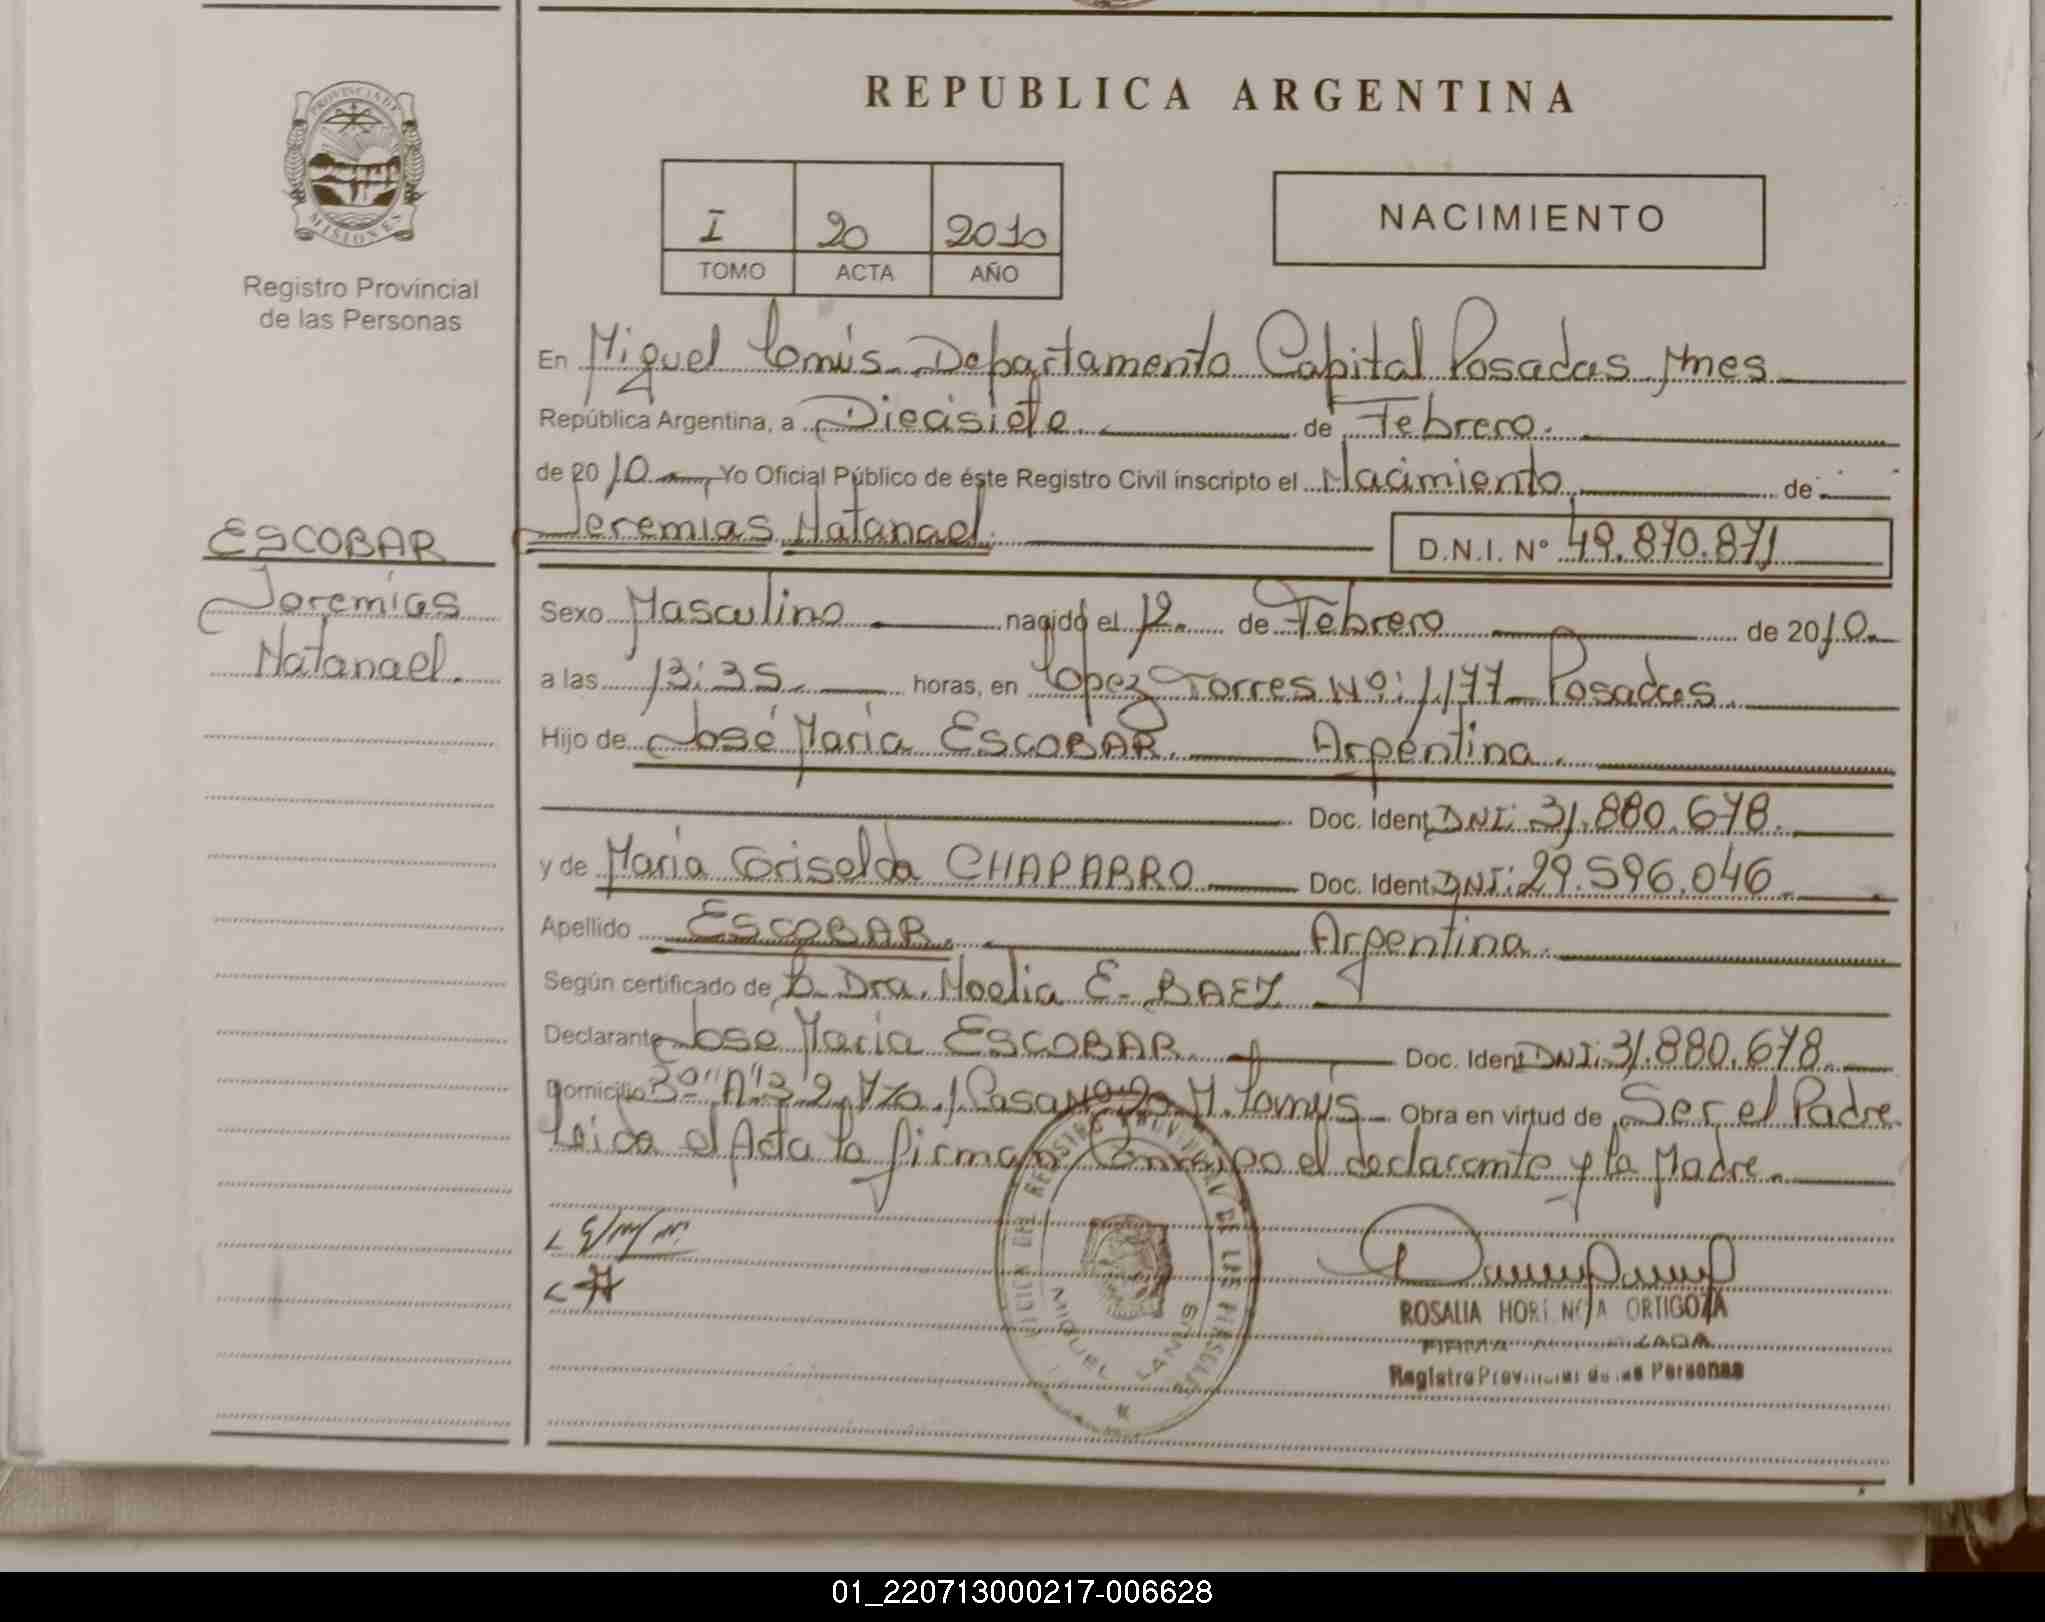 REPUBLICA ARGENTINA
PROVINCIA DE
MISIONES
Registro Provincial
de las Personas
I 20 2010
TOMO ACTA AÑO
NACIMIENTO
En Miguel Lanús. Departamento Capital Posadas Mnes
República Argentina, a Diecisiete de Febrero.
de 2010 Yo Oficial Público de éste Registro Civil inscripto el Nacimiento de
Jeremias Natanael. D.N.I. Nº 49.870.871
ESCOBAR
Jeremías
Natanael.
Sexo Masculino nacido el 12 de Febrero de 2010
a las 13:35 horas, en Lopez Torres Nº: 1177 Posadas.
Hijo de José María ESCOBAR. Argentina.
Doc. Ident. DNI: 31.880.678.
y de María Griselda CHAPARRO Doc. Ident. DNI: 29.596.046
Apellido ESCOBAR. Argentina.
Según certificado de la Dra. Noelia E. BAEZ
Declarante José María ESCOBAR Doc. Ident DNI: 31.880.678.
Domicilio Bº "A" 3 2 Mza. 1 Casa Nº M. Lanús Obra en virtud de Ser el Padre
Leida el Acta la firman Conmigo el declarante y la Madre.
REGISTRO PROVINCIAL DE LAS PERSONAS
MIGUEL LANUS
ROSALIA HORTENCIA ORTIGOZA
FIRMA AUTORIZADA
Registro Provincial de las Personas
01_220713000217-006628